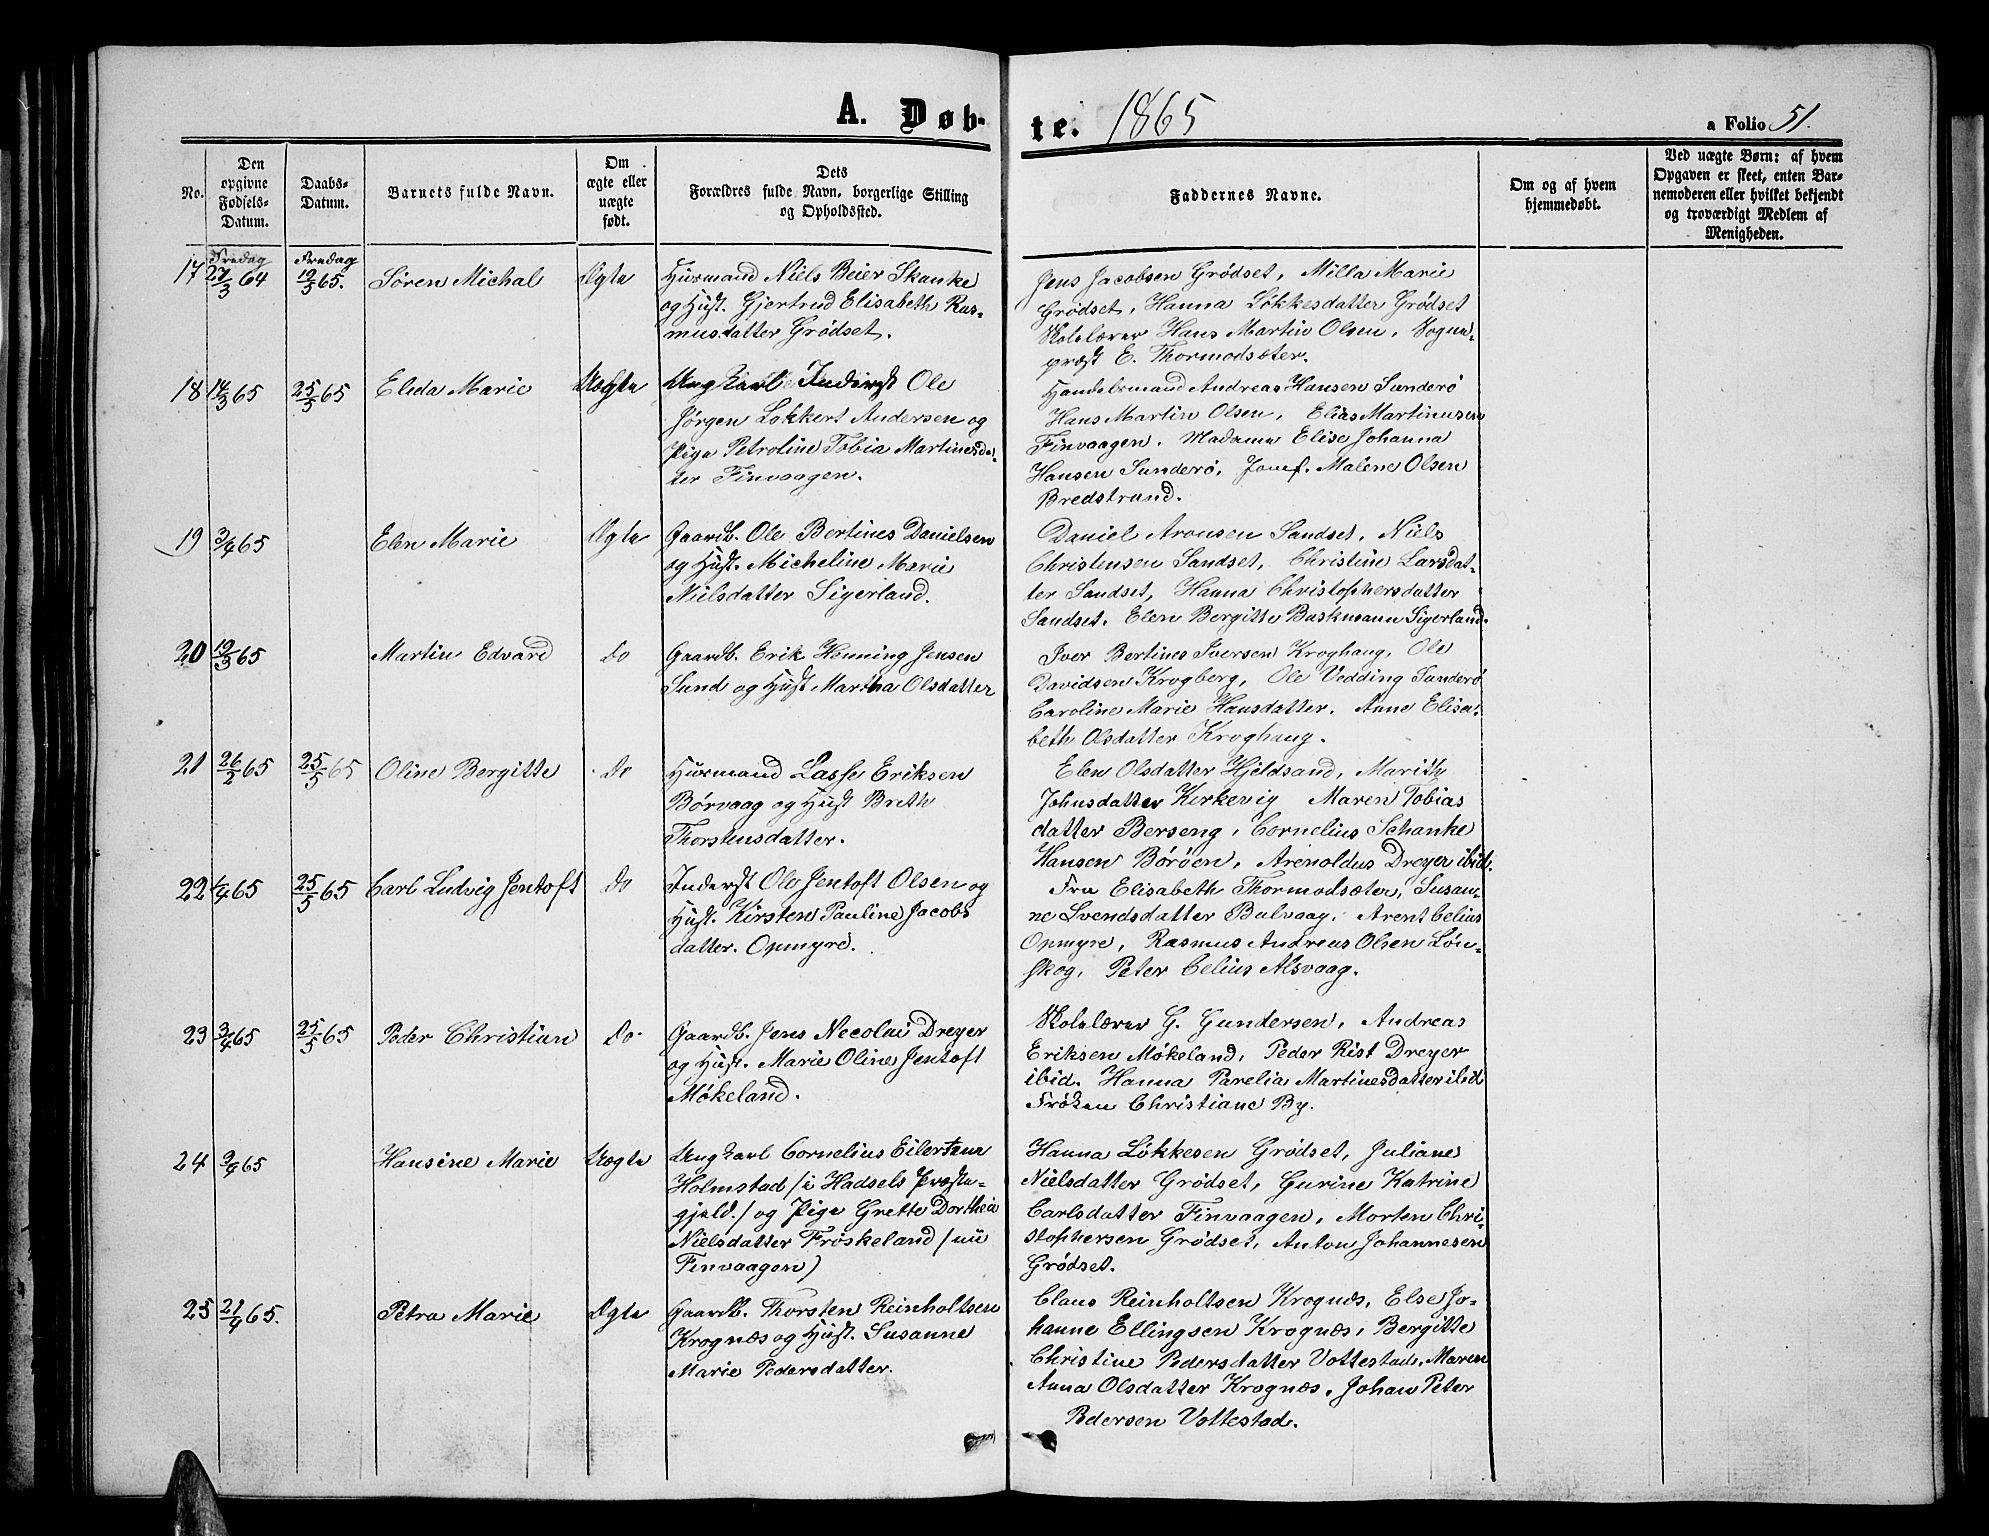 A. Døb-
te. 1865
a Folio 51.
No.
Den
opgivne
Fødsels-
Datum.
Daabs-
Datum.
Barnets fulde Navn.
Om
ægte eller
uægte
født.
Dets
Forældres fulde Navn, borgerlige Stilling
og Opholdssted.
Faddernes Navne.
Om og af hvem
hjemmedøbt.
Ved uægte Børn: af hvem
Opgaven er skeet, enten Bar-
nemoderen eller hvilket bekjendt
og troværdigt Medlem af
Menigheden.
17 Fredag 27/3 64 Fredag 19/5 65. Søren Michal Ægte
Husmand Niels Beier Skanke
og Hust. Gjertrud Elisabeth Ras-
musdatter Grødset.
Jens Jacobsen Grødset, Milla Marie
Grødset, Hanna Løkkesdatter Grødset
Skolelærer Hans Martin Olsen, Sogne-
præst E. Thormodsæter.
18 14/3 65 25/5 65 Elida Marie Uægte
Ungkarl Inderst Ole
Jørgen Lokkert Andersen og
Pige Petroline Tobia Martinesdat-
ter Finvaagen.
Handelsmand Andreas Hansen Sunderö
Hans Martin Olsen, Elias Martinusen
Finvaagen. Madame Elise Johanna
Hansen Sunderö, Jomf. Malene Olsen
Bredstrand.
19 3/4 65 Elen Marie Ægte
Gaardb. Ole Bertines Danielsen
og Hust. Micheline Marie
Nielsdatter Sigerland.
Daniel Aronsen Sandset, Niels
Christensen Sandset, Christine Larsdat-
ter Sandset, Hanna Christophersdatter
Sandset. Elen Bergitte Buskmann Sigerland.
20 19/3 65 Martin Edvard Do
Gaardb. Erik Henning Jensen
Sund og Hust Martha Olsdatter
Iver Bertines Iversen Kroghaug, Ole
Davidsen Krogberg, Ole Vedding Sunderö
Caroline Marie Hansdatter. Anne Elisa-
beth Olsdatter Kroghaug.
21 26/2 65 25/5 65 Oline Bergitte Do
Husmand Lasse Eriksen
Börvaag og Hust Breth
Thorstensdatter.
Elen Olsdatter Hjeldsand, Marith
Johnsdatter Kirkevig Maren Tobias
datter Berseng, Cornelius Schanke
Hansen Börøen, Arenoldus Dreyer ibid.
22 /4 65 25/5 65 Carl Ludvig Jentoft Do
Inderst Ole Jentoft Olsen og
Hust. Kirsten Pauline Jacobs
datter. Opmyre.
Fru Elisabeth Thormodsæter, Susan-
ne Svendsdatter Bulvaag, Arent Celius
Opmyre, Rasmus Andreas Olsen Løn-
skog, Peter Celius Alsvaag.
23 3/4 65 25/5 65 Peder Christian Do
Gaardb. Jens Necolai Dreyer
og Hust. Marie Oline Jentoft
Møkeland.
Skolelærer G. Gundersen, Andreas
Eriksen Møkeland, Peder Rist Dreyer
ibid. Hanna Parelia Martinesdatter ibid
Frøken Christiane By.
24 9/4 65 Hansine Marie Uægte
Ungkarl Cornelius Eilertsen
Holmstad /i Hadsels Præste-
gjeld./ og Pige Grette Dorthea
Nielsdatter Frøskeland /nu
Finvaagen)
Hanna Løkkesen Grødset, Juliane
Nielsdatter Grødset, Gurine Katrine
Carlsdatter Finvaagen, Morten Chri-
stophersen Grødset, Anton Johannesen
Grødset.
25 21/4 65. Petra Marie Ægte
Gaardb. Thorsten Reinholtsen
Krognæs og Hust. Susanne
Marie Pedersdatter.
Claus Reinholtsen Krognæs, Else Jo-
hanne Ellingsen Krognæs, Bergitte
Christine Pedersdatter Vottestad, Maren
Anna Olsdatter Krognæs. Johan Peter
Pedersen Vottestad.